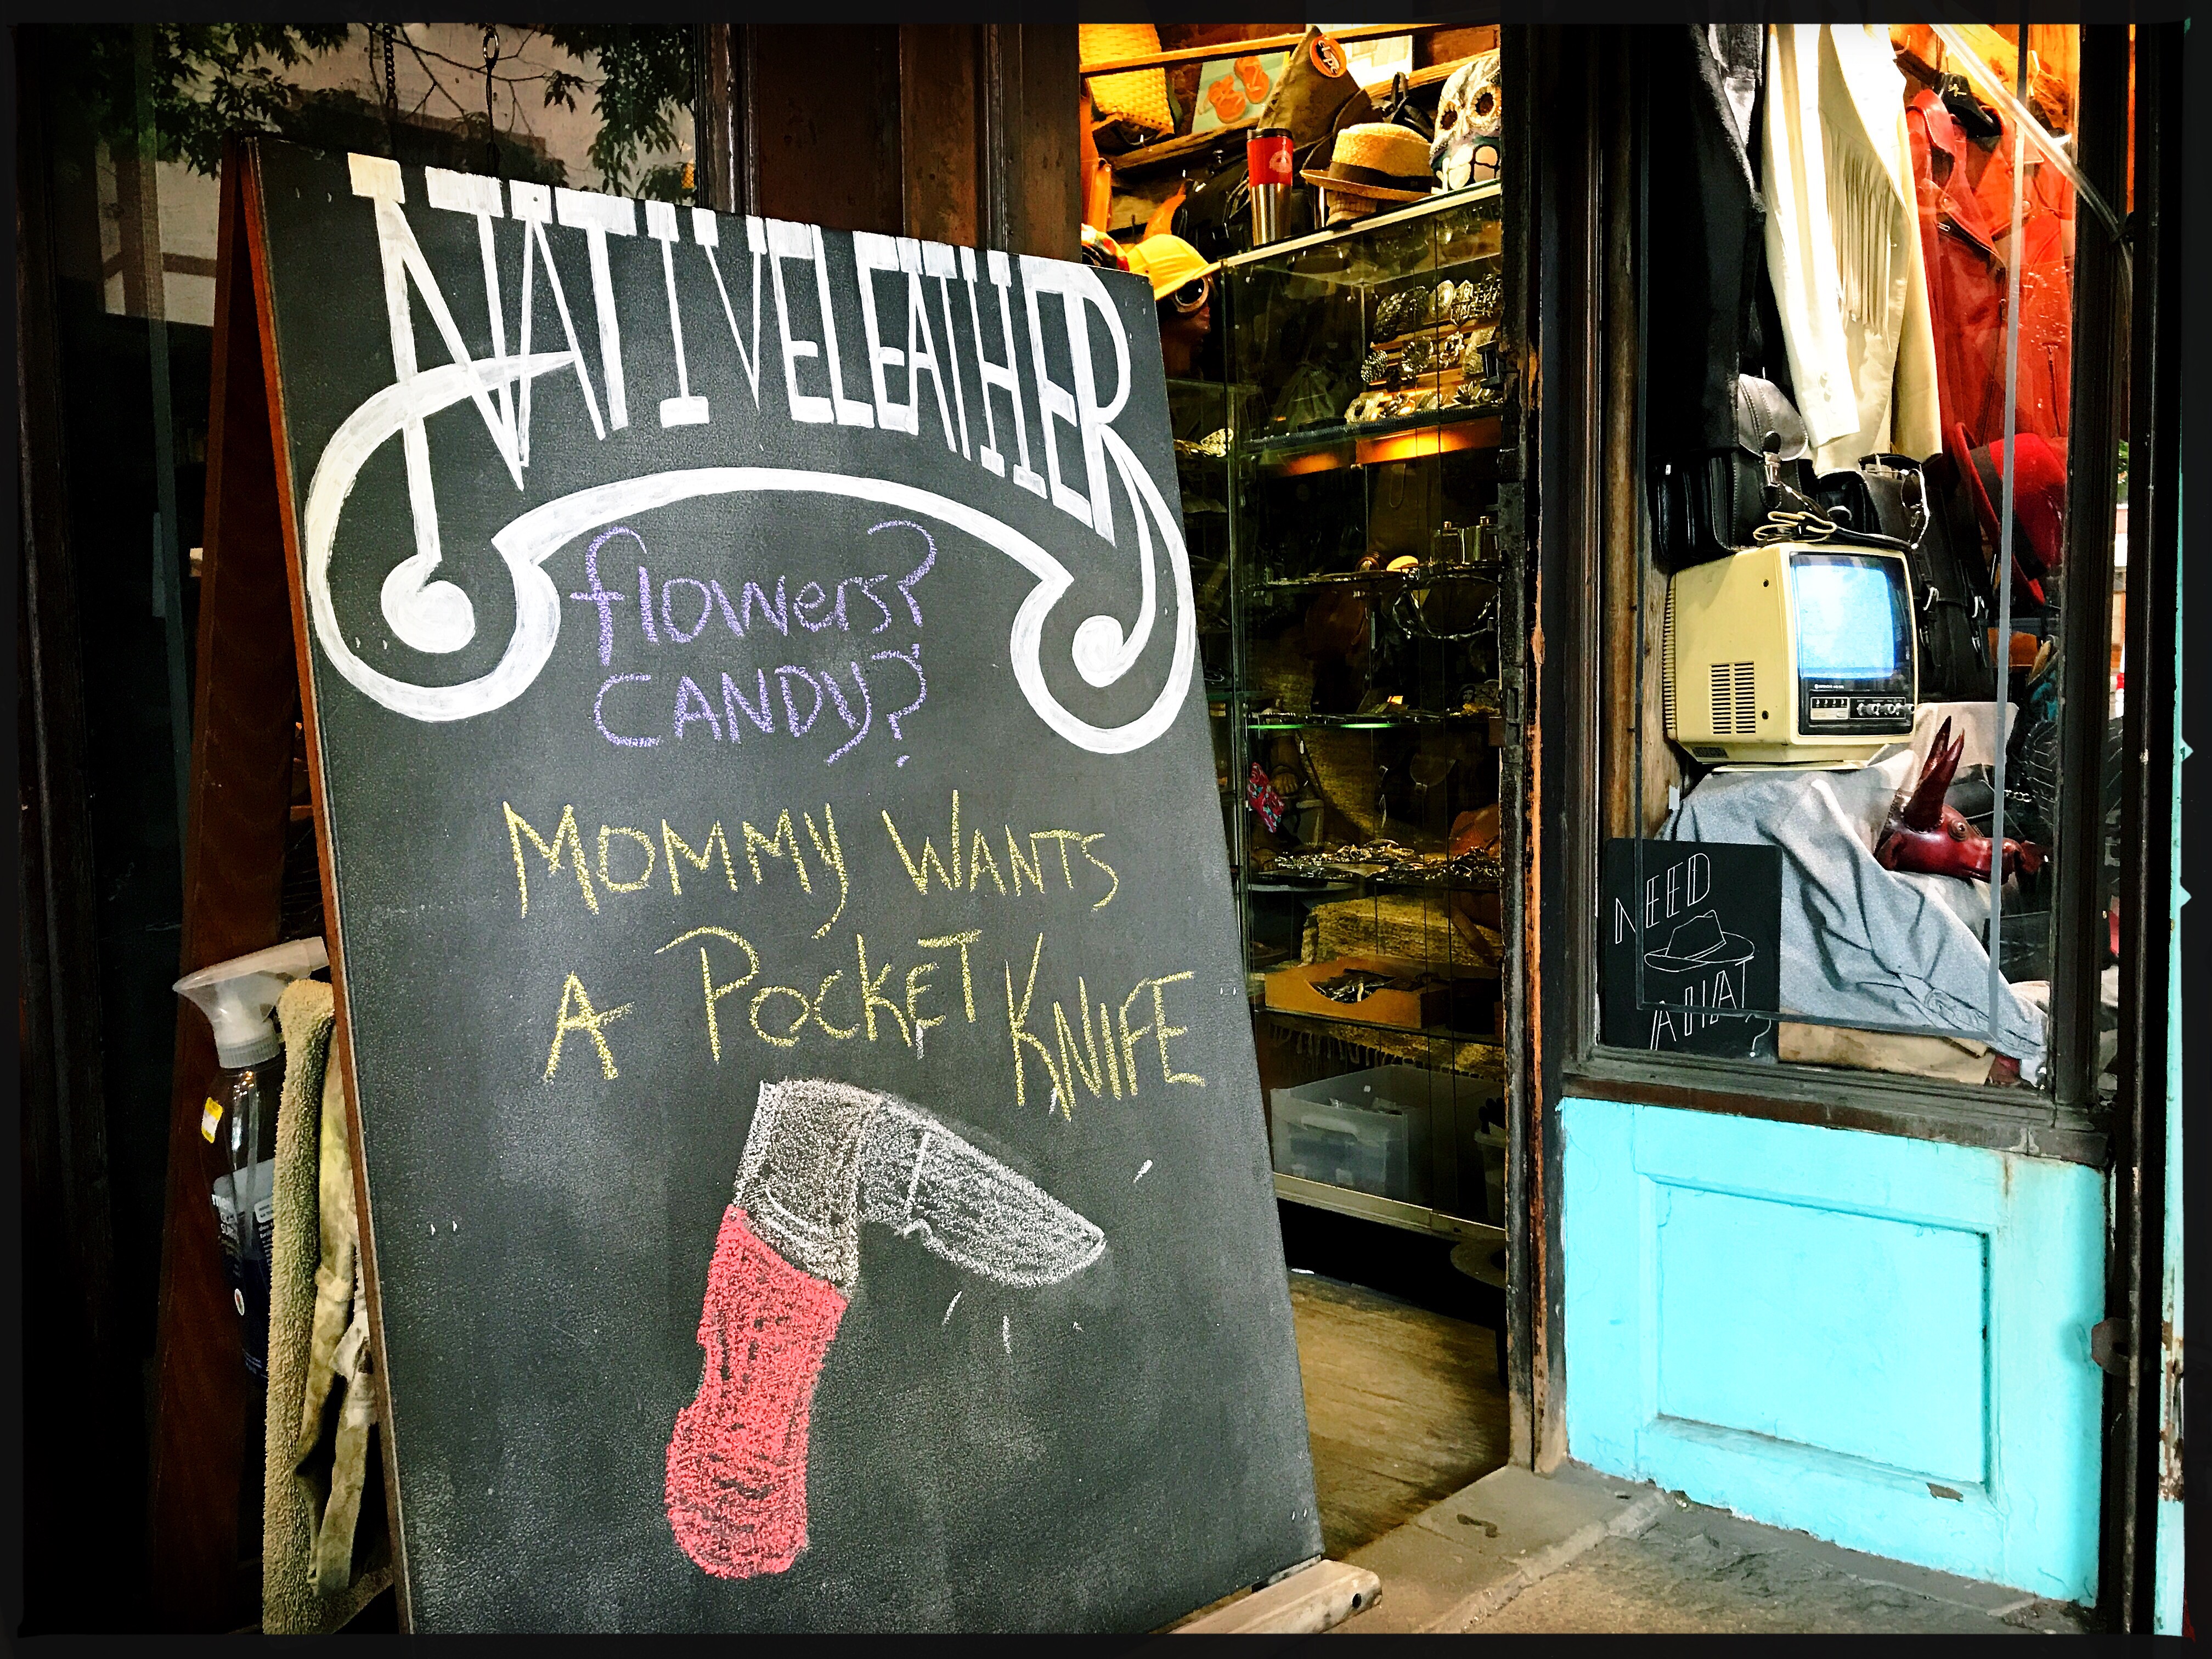 NATIVE LEATHER
flowers?
CANDY?
MOMMY WANTS
A POCKET KNIFE
NEED
A HAT
?